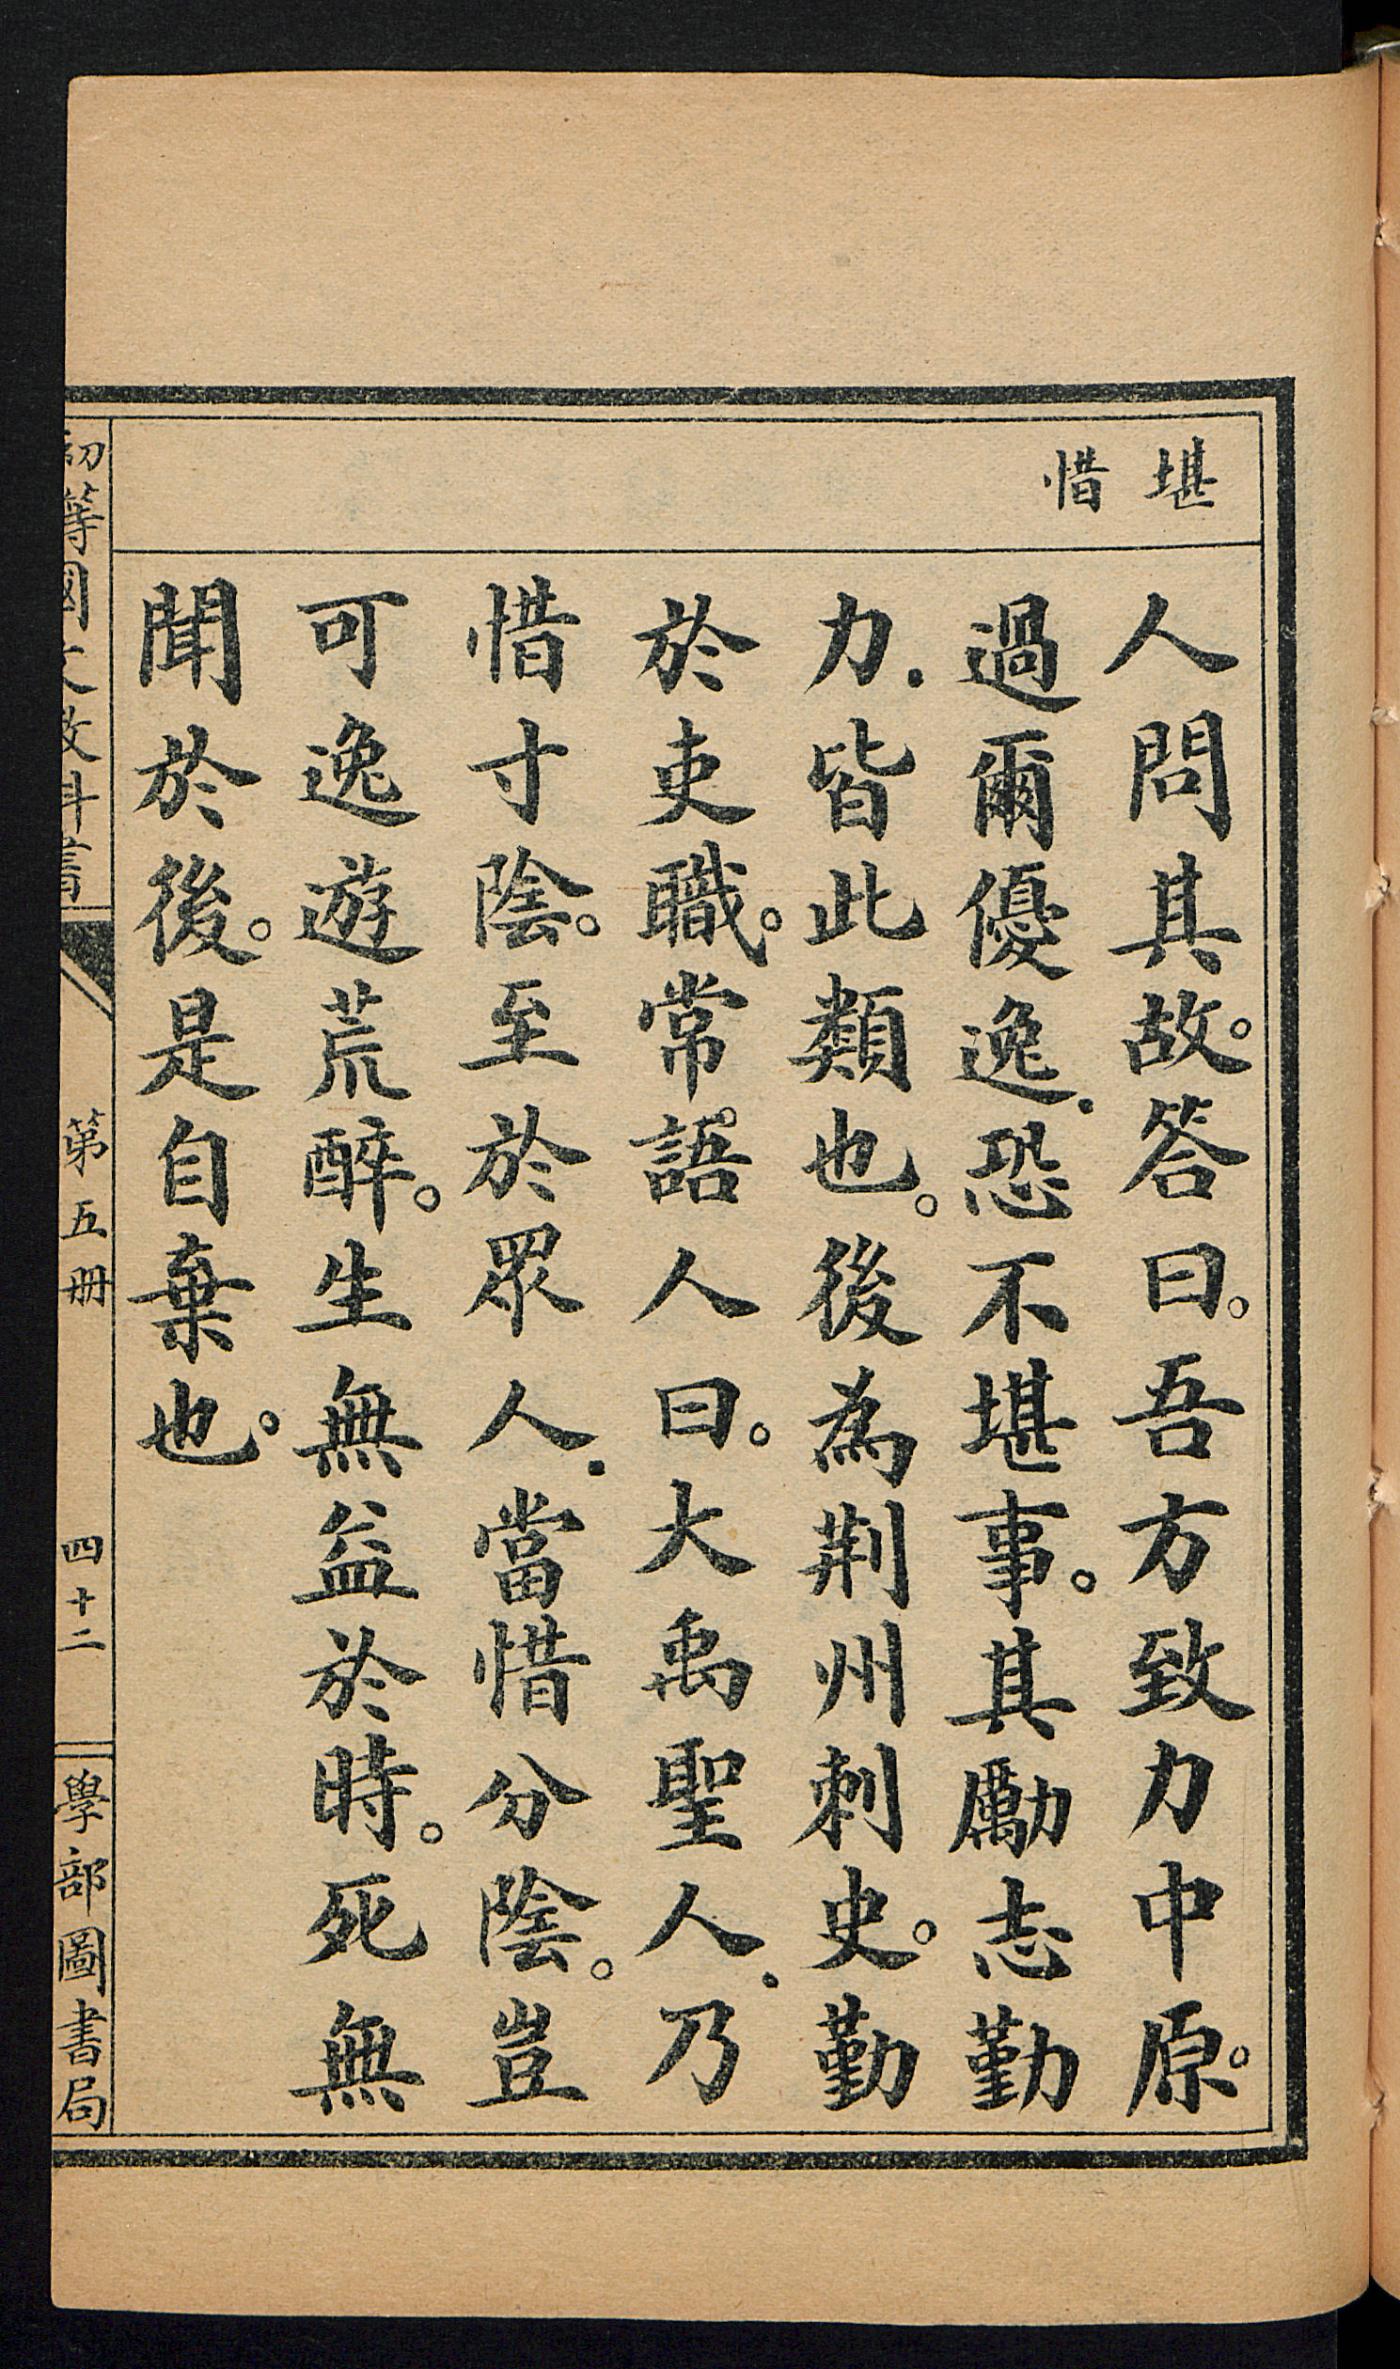 堪
惜
人問其故。答曰。吾方致力中原。
過爾優逸.恐不堪事。其勵志勤
力.皆此類也。後為荆州刺史。勤
於吏職。常語。人曰。大禹聖人.乃
惜寸陰。至於眾人.當惜分陰。豈
可逸遊荒醉。生無益於時。死無
聞於後。是自棄也。
初等國文教科書 第五册 四十二 學部圖書局